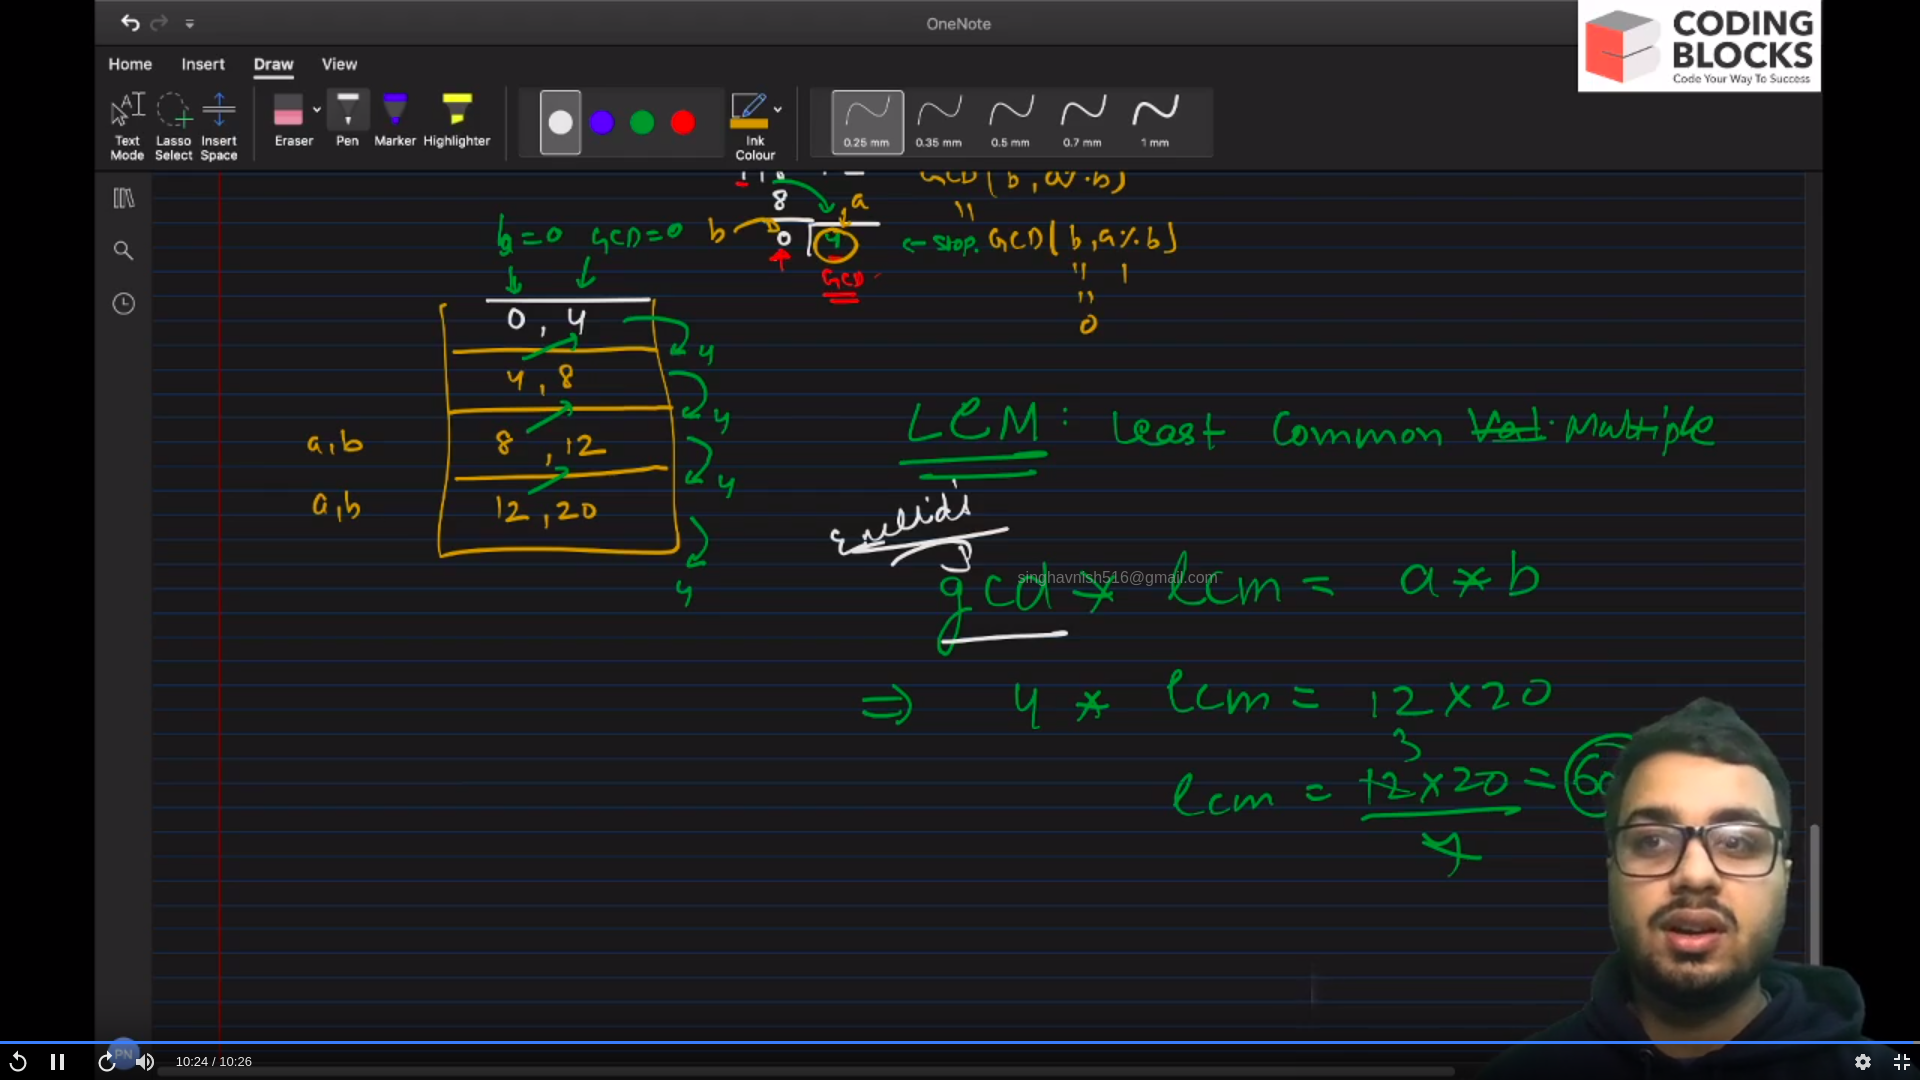 OneNote
CODING
BLOCKS
Code Your Way To Success
Home Insert Draw View
Text Mode
Lasso Select
Insert Space
Eraser
Pen
Marker
Highlighter
Ink Colour
0.25 mm
0.35 mm
0.5 mm
0.7 mm
1 mm
GCD(b, a%b)
8 a
b=0 GCD=0 b 0 4 ← stop. GCD(b, a%b)
GCD
0
0, 4 4
4, 8 4
a,b 8, 12 4
a,b 12, 20 4
LCM: Least Common Multiple
Euclid's
singhavnish516@gmail.com
gcd * lcm = a * b
⇒ 4 * lcm = 12 x 20
3
lcm = 12 x 20 = 60
4
PN
10:24 / 10:26